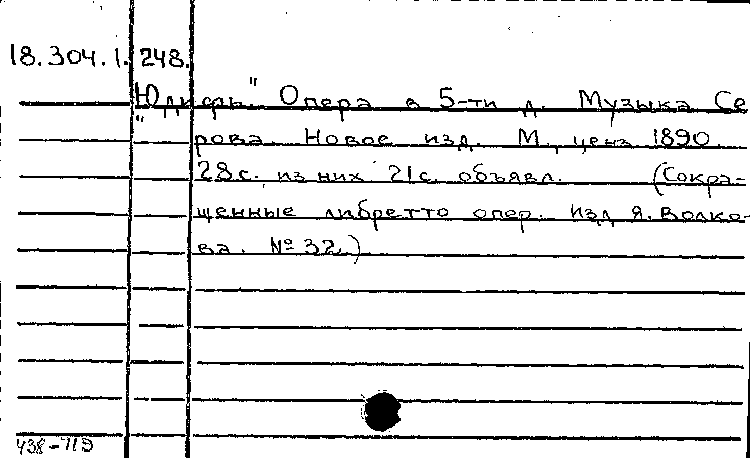 18.304.1.248.
"Юдифь". Опера в 5-ти д. Музыка Се
рова. Новое изд. М., ценз. 1890.
28 с. из них 21 с. объявл. (Сокра-
щенные либретто опер. Изд. Я. Волко-
ва. № 32.)
438-719